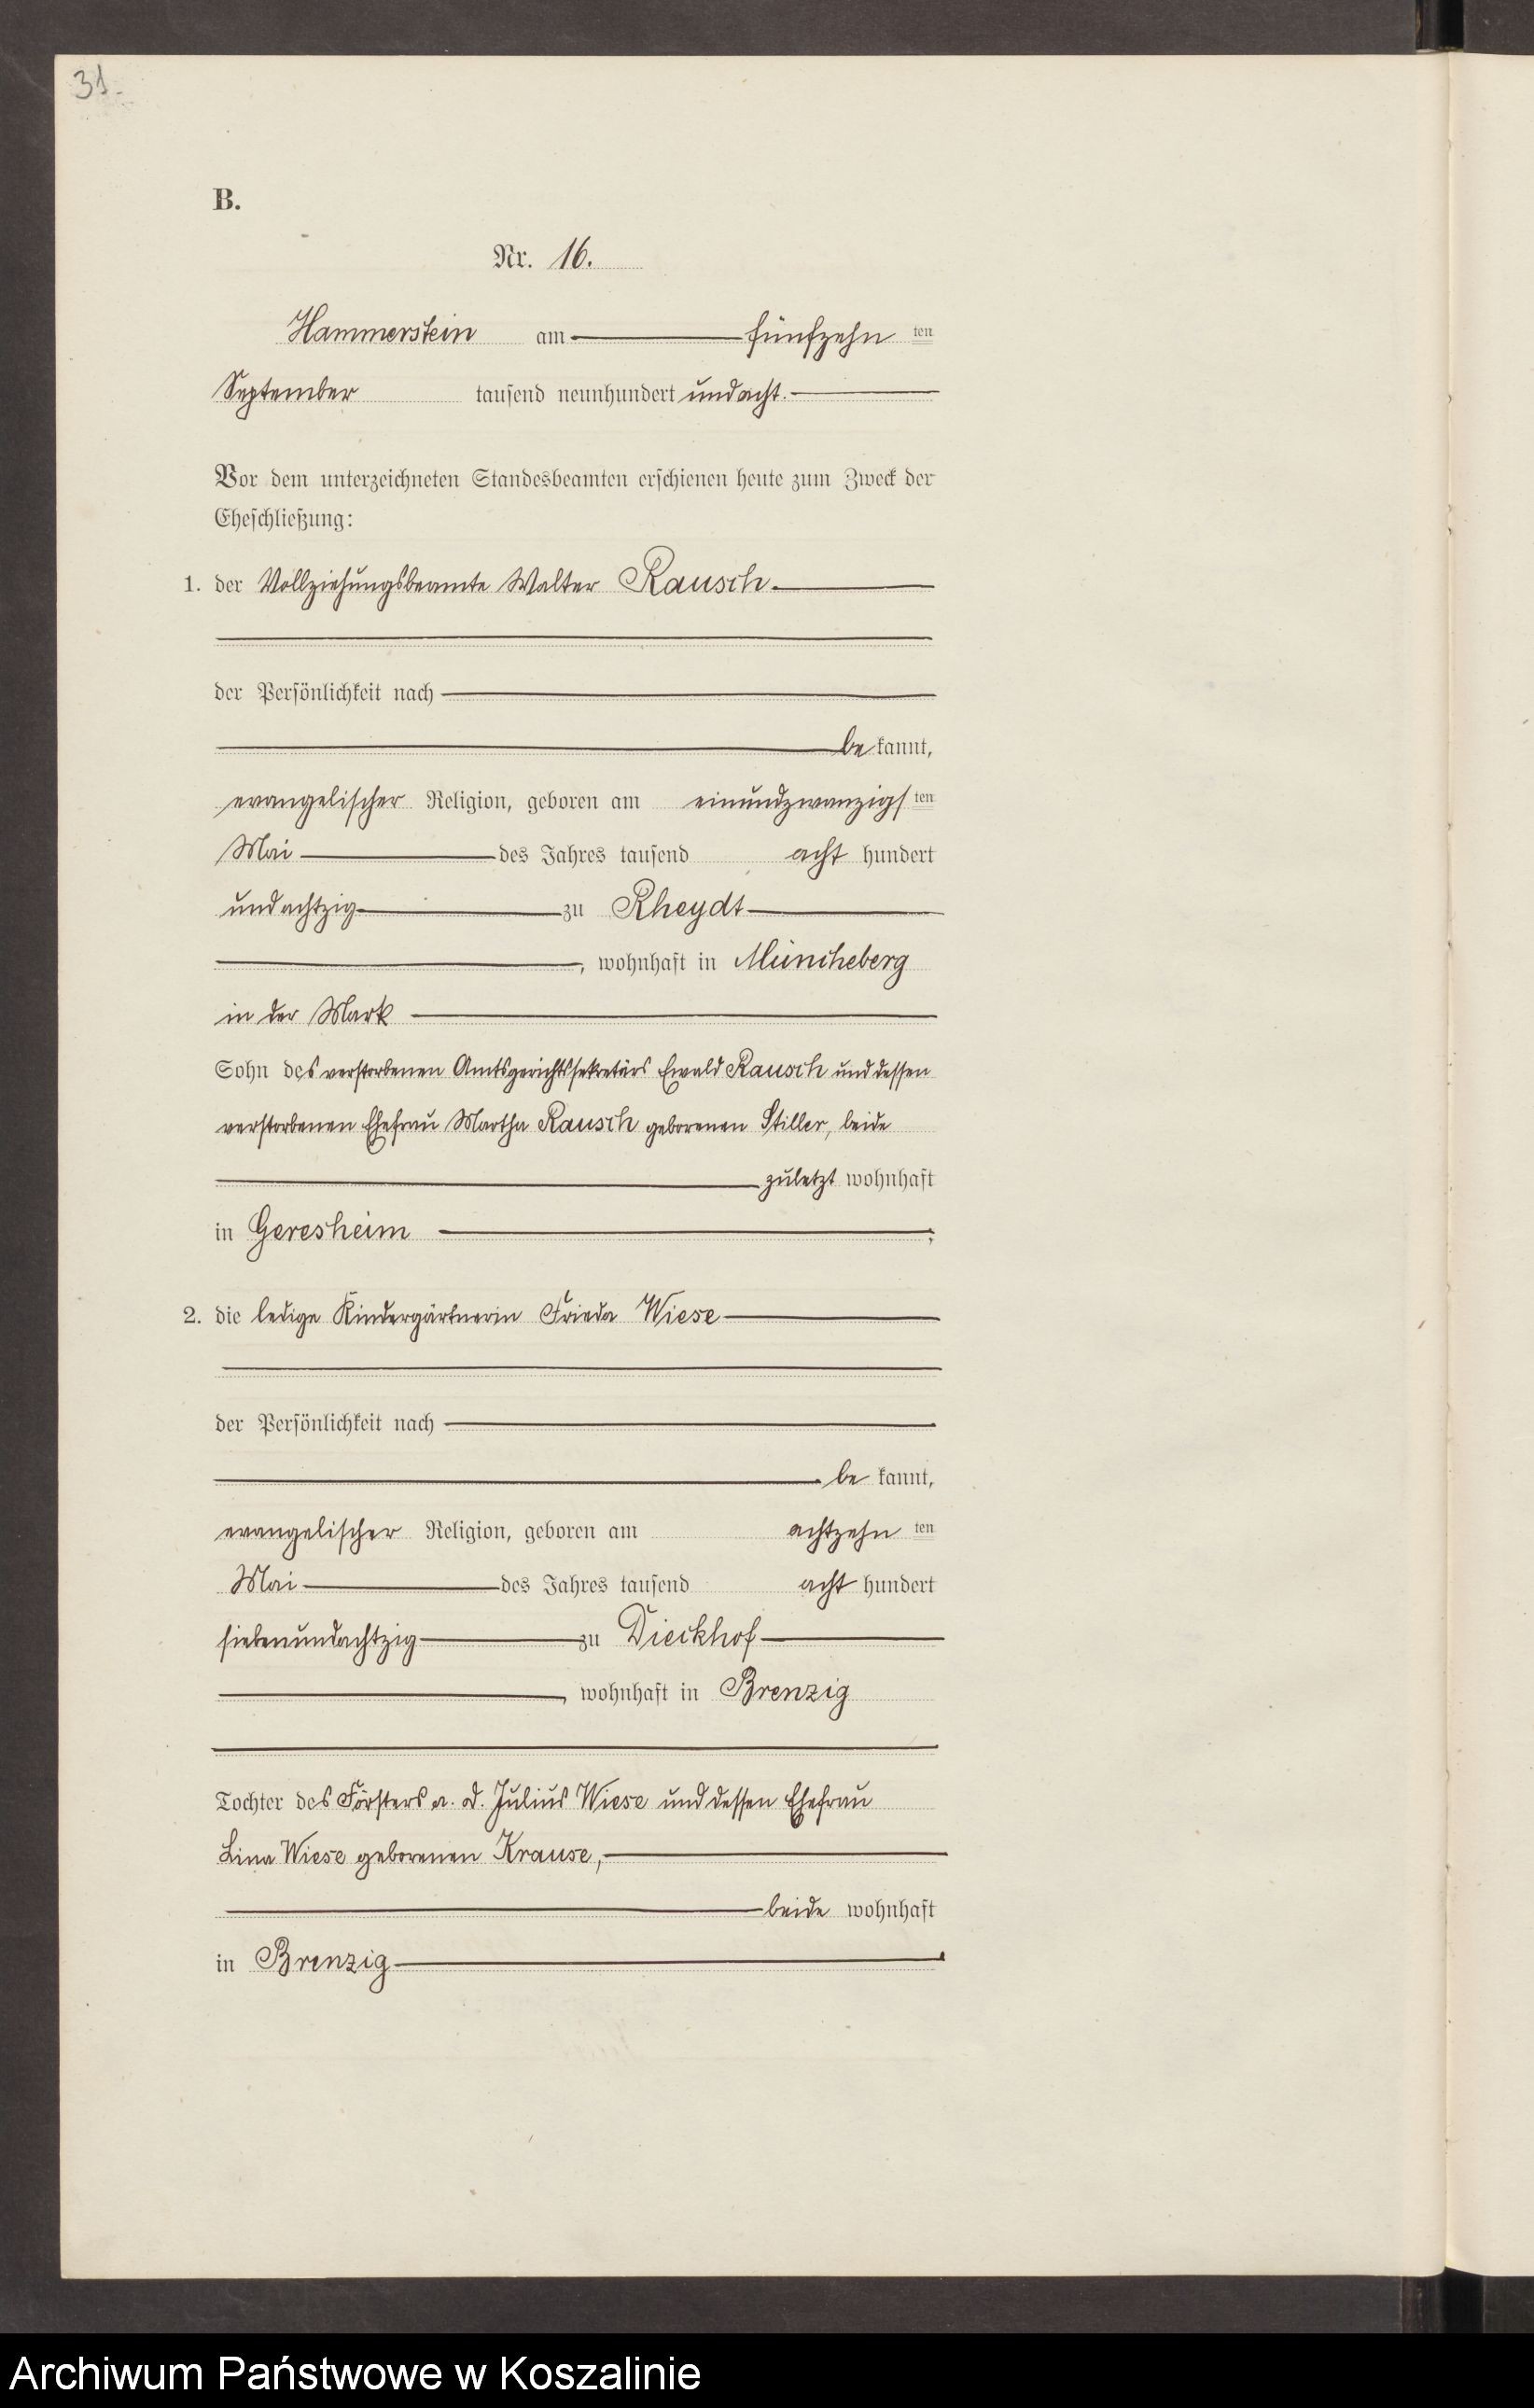 31.
B.
Nr. 16.
Hammerstein am fünfzehn ten
September tausend neunhundert undacht.
Vor dem unterzeichneten Standesbeamten erschienen heute zum Zweck der
Eheschließung:
1. der Vollziehungsbeamte Walter Rausch
der Persönlichkeit nach
be kannt,
evangelischer Religion, geboren am einundzwanzigs ten
Mai des Jahres tausend acht hundert
undachtzig zu Rheydt
, wohnhaft in Müncheberg
in der Mark
Sohn des verstorbenen Amtsgerichtssekretärs Ewald Rausch und dessen
verstorbenen Ehefrau Martha Rausch geborenen Stiller, beide
zuletzt wohnhaft
in Geresheim ;
2. die ledige Kindergärtnerin Frieda Wiese
der Persönlichkeit nach
be kannt,
evangelischer Religion, geboren am achtzehn ten
Mai des Jahres tausend acht hundert
siebenundachtzig zu Dieckhof
, wohnhaft in Brenzig
Tochter des Försters a. D. Julius Wiese und dessen Ehefrau
Lina Wiese geborenen Krause,
beide wohnhaft
in Brenzig
Archiwum Państwowe w Koszalinie